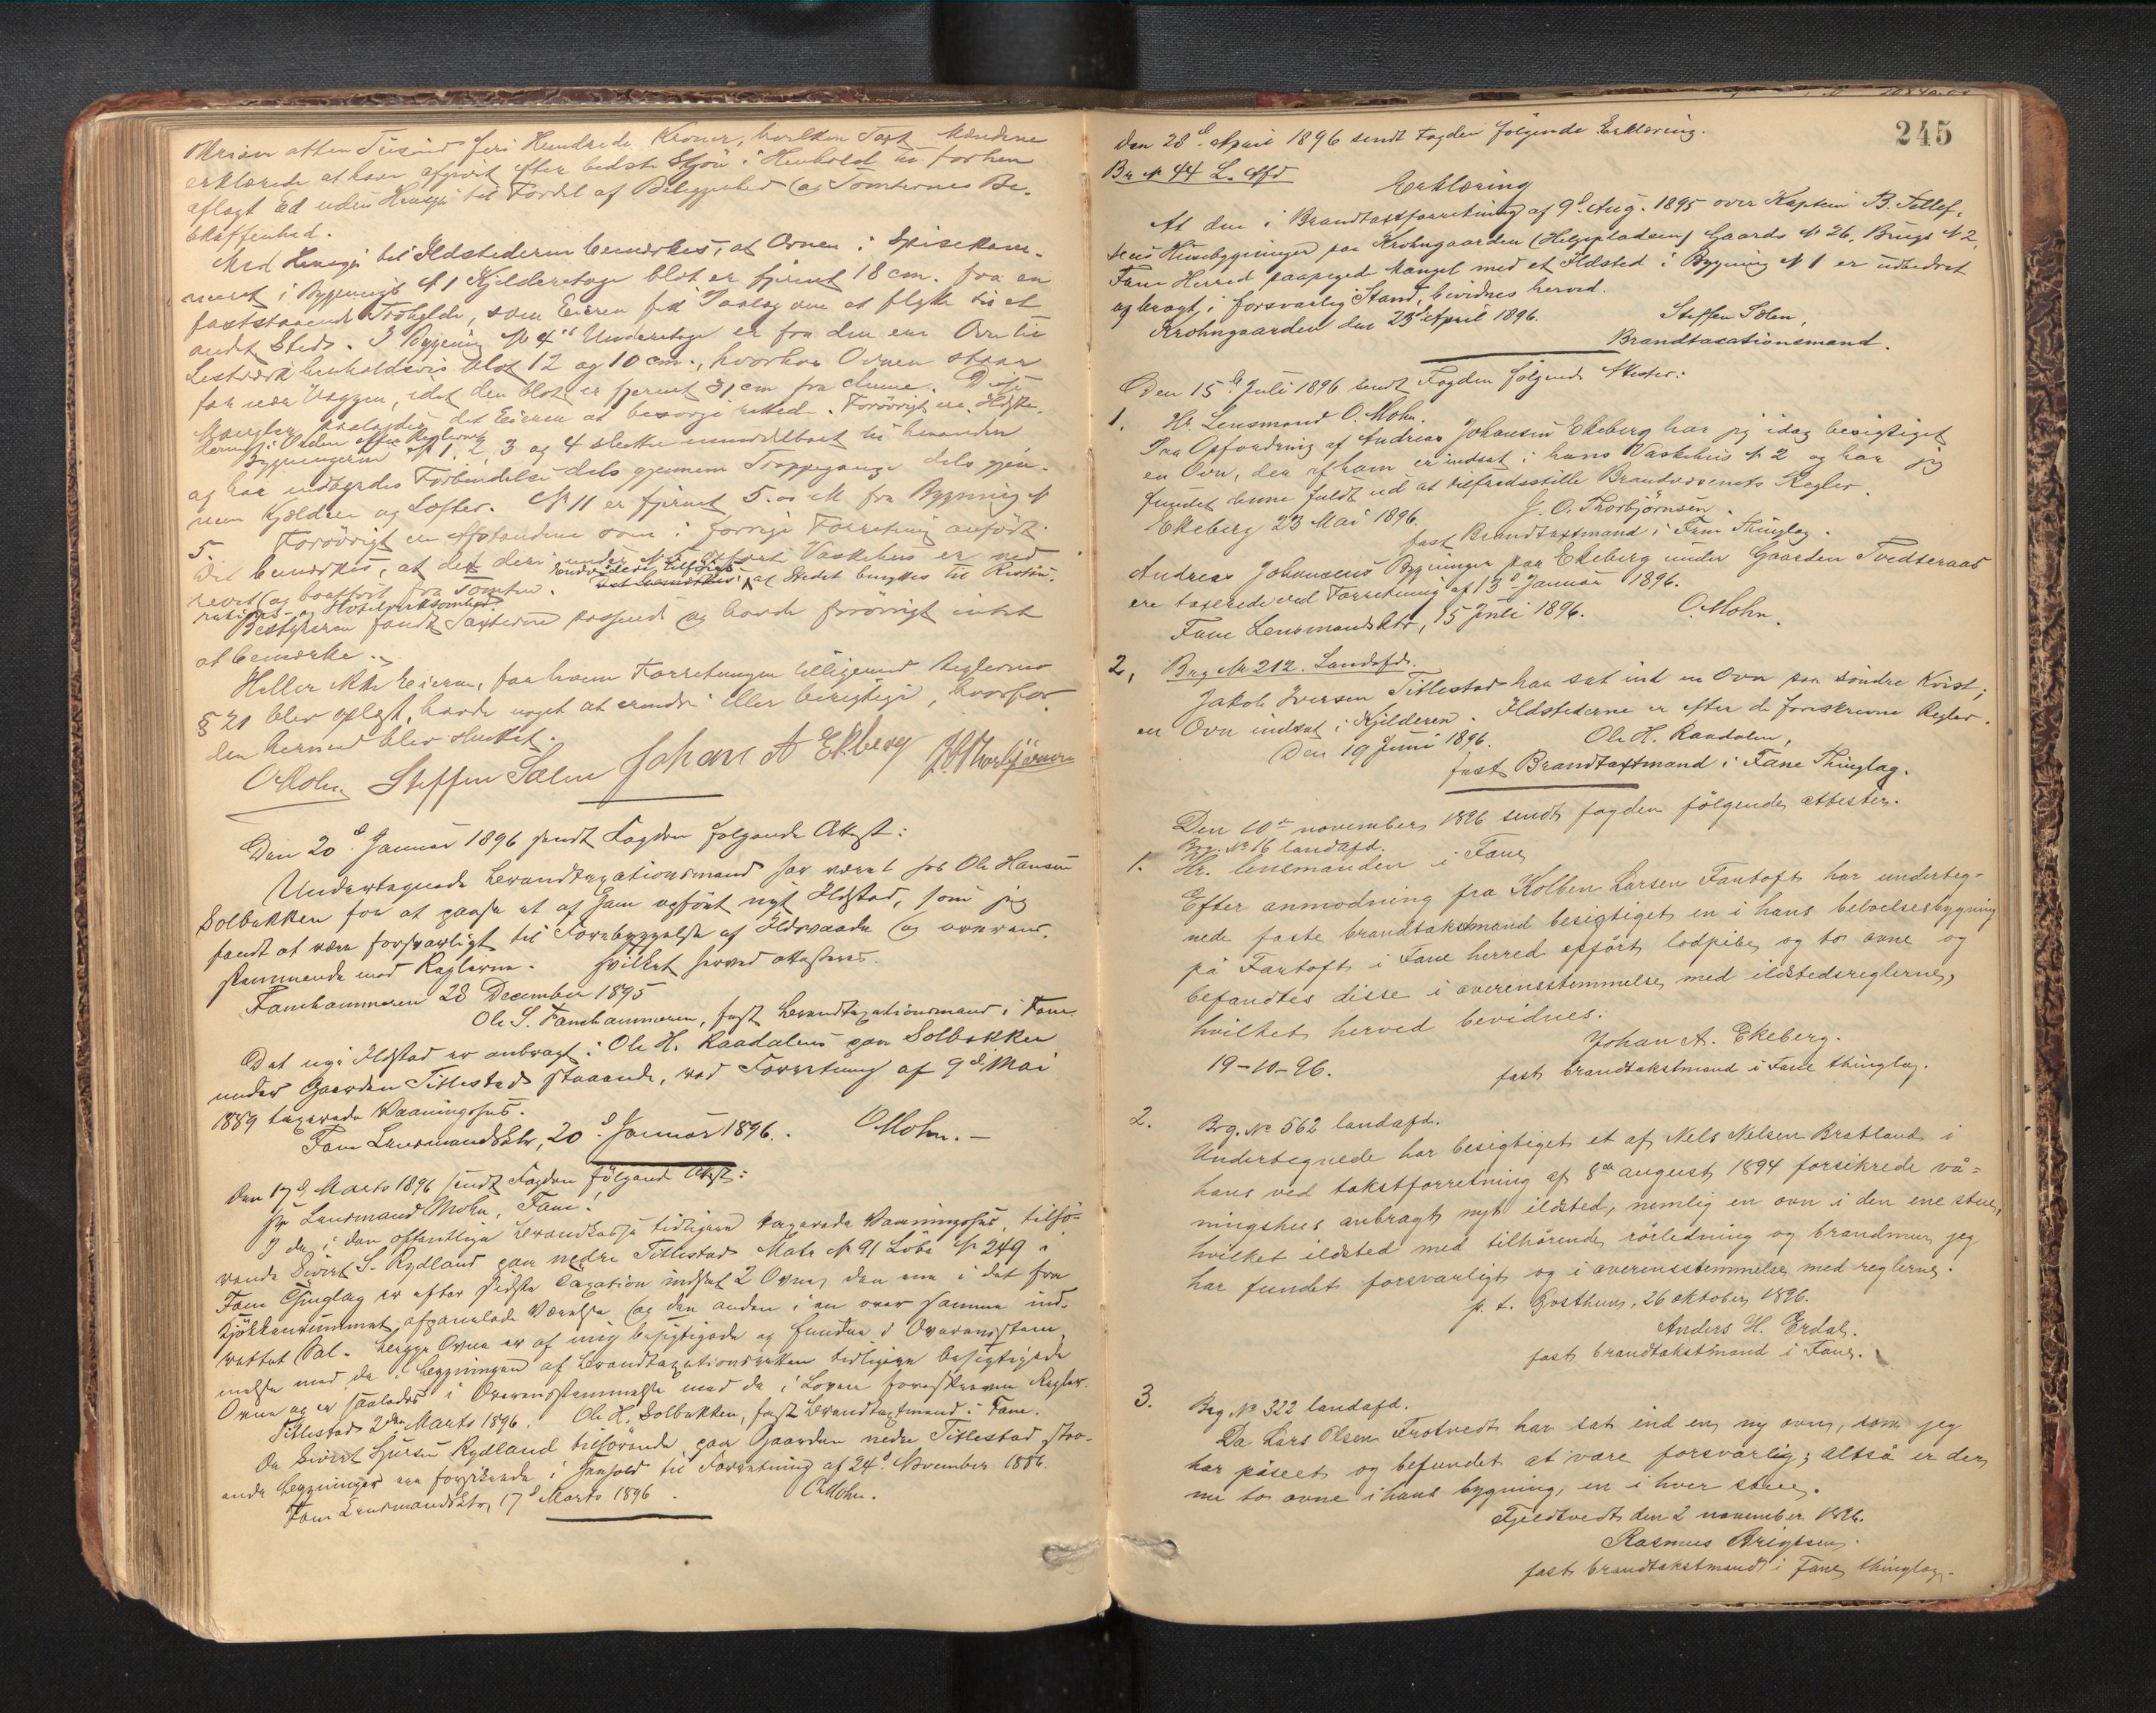 skriver atten Tusind fem Hundrede Kroner, hvilken Taxt Mændene
erklærede at have afgivet efter bedste Skjøn i Henhold til forhen
aflagt Ed uden Hensyn til Fordel af Beliggenhed og Tomternes Be-
skaffenhed.
Med Hensyn til Ildstederne bemærkes, at Ovnen i Spisekam-
meret i Bygning № 1 Kjelderetage blot er fjernet 18 cm. fra en
faststaaende Træhylde, som Eieren fik Paalæg om at flytte til et
andet Sted. I Bygning № 4 Underetage er fra den ene Ovn til
Listværk henholdsvis blot 12 og 10 cm., hvorhos Ovnen staar
for nær Væggen, idet den blot er fjernet 31 cm fra denne. Disse
Mangler paalagdes det Eieren at besørge rettede. Forøvrigt ere Ildste-
derne i Orden efter Reglerne
Bygningerne № 1, 2, 3 og 4 støtte umiddelbart til hinanden
og har indbyrdes Forbindelse dels gjennem Trappegange dels gjen-
nem Kjældere og Lofter. № 11 er fjernet 5.00 M fra Bygning №
5. Forøvrigt er Afstandene som i forrige Forretning anført.
Det bemærkes, at det deri under № 5 opførte Vaskehus er ned
revet og bortført fra Tomten. Endvidere tilføies at Stedet benyttes til Restau-
rations- og Hotelvirksomhed.
Bestyreren fandt Taxterne passende og havde forøvrigt intet
at bemærke.
Heller ikke Eieren, for hvem Forretningen tilligemed Reglernes
§ 21 blev oplæst, havde noget at erindre eller berigtige, hvorfor
den hermed blev sluttet.
O Mohn Steffen Sælen Johan A Ekeberg J. O. Thorbjørnsen
Den 20d. Januar 1896 sendt Fogden følgende Attest:
Undertegnede Brandtaxationsmand har været hos Ole Hansen
Solbakken for at paase et af ham opført nyt Ildsted, som jeg
fandt at være forsvarligt til Forebyggelse af Ildsvaade og overens-
stemmende med Reglerne. Hvilket herved attesteres.
Fanehammeren 28 December 1895
Ole S. Fanehammeren, fast Brandtaxationsmand i Fane.
Det nye Ildsted er anbragt i Ole H. Raadalens paa Solbakken
under Gaarden Titlestad staaende, ved Forretning af 9d. Mai
1889 taxerede Vaaningshus.
Fane Lensmandsktr, 20d. Januar 1896. O Mohn.
Den 17d. Marts 1896 sendt Fogden følgende Attest:
Hr Lensmand Mohn, Fane!
I de i den offentlige Brandkasse tidligere taxerede Vaaningshus, tilhø-
rende Sivert S. Rydland paa nedre Titlestad Matr № 91 Løbe № 249 i
Fane Thinglag er efter sidste Taxation indsat 2 Ovne, den ene i det fra
Kjøkkenrummet afpanelede Værelse og den anden i en over samme ind-
rettet Sal. Begge Ovne er af mig besigtigede og fundne i Overensstem
melse med de i Bygningen af Brandtaxationsretten tidligere besigtigede
Ovne og er saaledes i Overensstemmelse med de i Loven foreskrevne Regler.
Titlestad 2den Marts 1896. Ole H. Solbakken, fast Brandtaxtmand i Fane.
De Sivert Sjursen Rydland tilhørende, paa Gaarden nedre Titlestad staa-
ende Bygninger ere forsikrede i Henhold til Forretning af 24d. November 1886.
Fane Lensmandsktr, 17d Marts 1896. O Mohn.
245
Den 28d. April 1896 sendt Fogden følgende Erklæring.
Br № 44 L. Afd
Erklæring
At den i Brandtaxtforretning af 9d. Aug. 1895 over Kaptein B. Tollef-
sens Husebygninger paa Krohngaarden (Helgepladsen) Gaards № 26, Brugs № 2,
Fane Herred paapegede Mangel med et Ildsted i Bygning № 1 er udbedret
og bragt i forsvarlig Stand, bevidnes herved.
Krohngaarden den 23d April 1896. Steffen Sælen,
Brandtaxationsmand.
Den 15de Juli 1896 sendt Fogden følgende Attester:
1. Hr. Lensmand O. Mohn.
Paa Opfordring af Andreas Johansen Ekeberg har jeg idag besigtiget
en Ovn, der af ham er indsat i hans Vaskehus № 2 og har jeg
fundet denne fuldt ud at tilfredsstille Brandvæsenets Regler.
Ekeberg 23 Mai 1896. J. O. Thorbjørnsen.
fast Brandtaxtmand i Fane Thinglag.
Andreas Johansens Bygninger paa Ekeberg under Gaarden Tvedteraas
ere taxerede ved Forretning af 13d Januar 1896.
Fane Lensmandsktr, 15 Juli 1896. O. Mohn.
2, Brg № 212. Landafd.
Jakob Iversen Titlestad har sat ind en Ovn paa søndre Kvist;
en Ovn indsat i Kjelderen. Ildstederne er efter de foreskrevne Regler.
Den 19 Juni 1896. Ole H. Raadalen,
fast Brandtaxtmand i Fane Thinglag.
Den 10de november 1896 sendt fogden følgende attester.
Brg. № 16 landafd.
1. Hr. lensmanden i Fane
Efter anmodning fra Kolben Larsen Fantoft har underteg-
nede faste brandtakstmand besigtiget en i hans beboelsesbygning
på Fantoft i Fane herred opført lodpibe og to ovne og
befandtes disse i overensstemmelse med ildstedsreglerne,
hvilket herved bevidnes.
19-10-96. Johan A. Ekeberg.
fast brandtakstmand i Fane thinglag.
2. Brg. № 562 landafd.
Undertegnede har besigtiget et af Nels Nelsen Bratland i
hans ved takstforretning af 8de august 1894 forsikrede vå-
ningshus anbragt nyt ildsted, nemlig en ovn i den ene stue,
hvilket ildsted med tilhørende rørledning og brandmur jeg
har fundet forsvarligt og i overensstemmelse med reglerne.
p. t. Gvsthun, 26 oktober 1896.
Anders H. Erdal.
fast brandtakstmand i Fane.
3. Brg № 322 landafd.
Da Lars Olsen Frotvedt har sat ind en ny ovn, som jeg
har påseet og befundet at være forsvarlig; altså er der
nu to ovne i hans bygning, en i hver stue.
Fjeldtvedt den 2 november 1896.
Rasmus Brigtsen.
fast brandtakstmand i Fane thinglag.